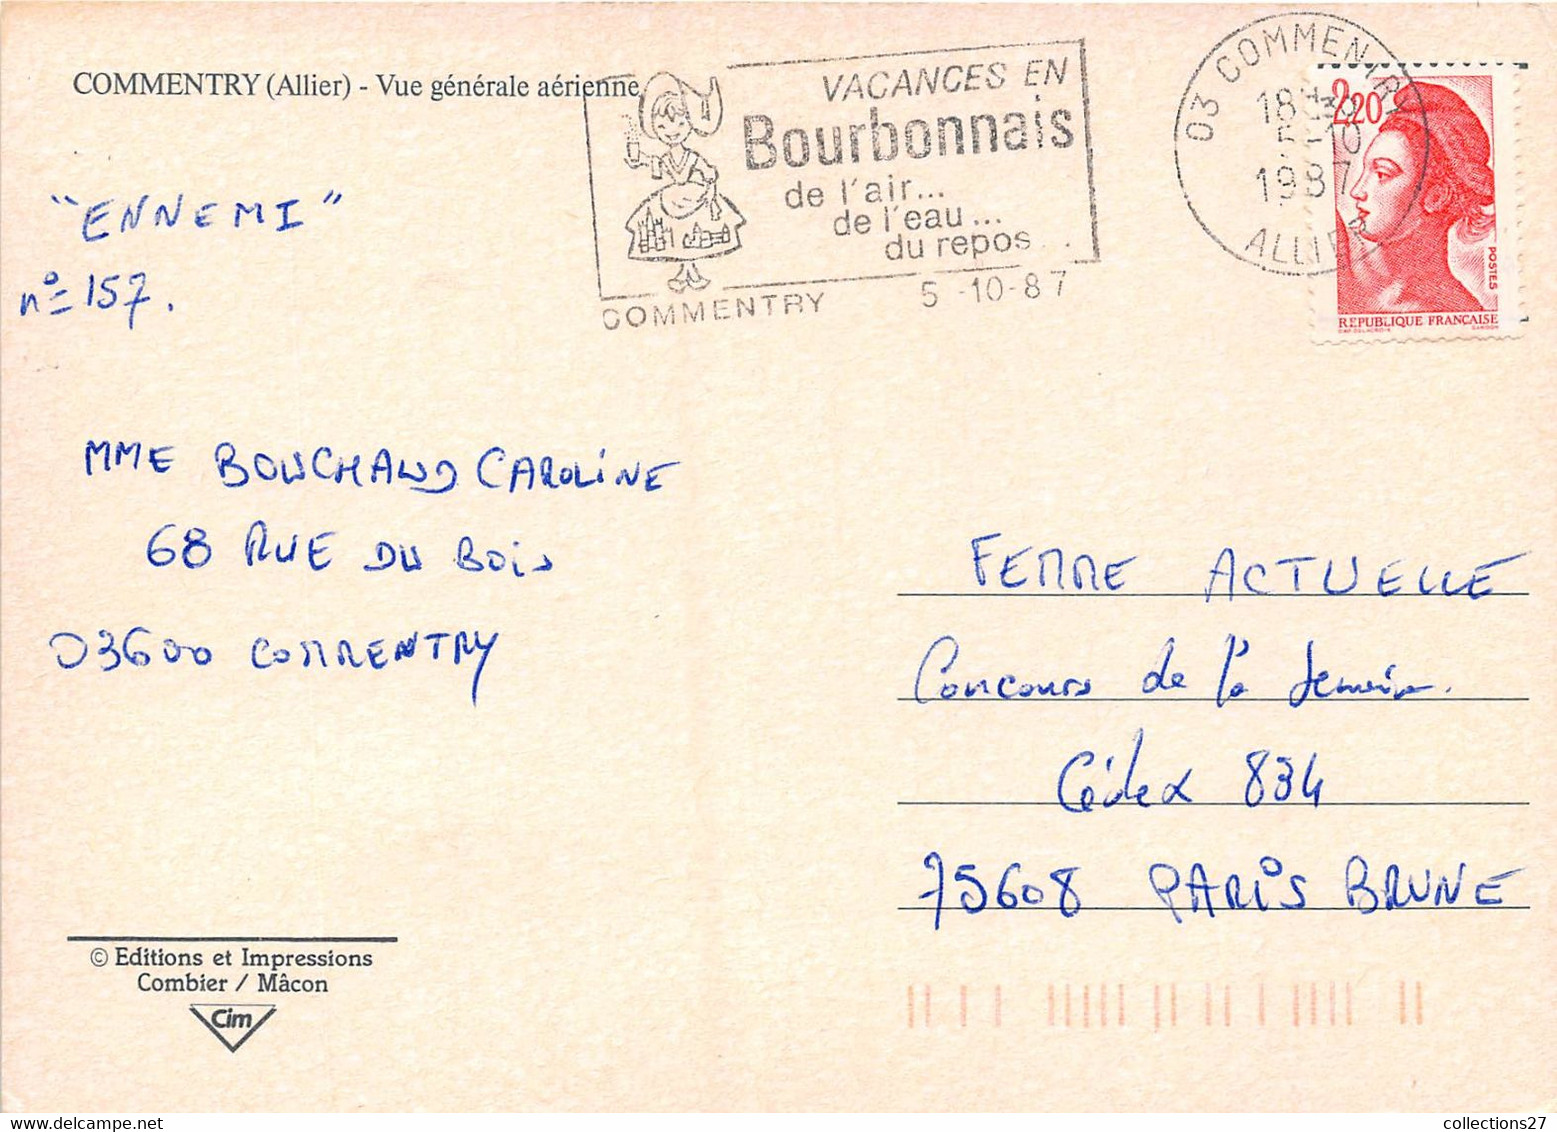 COMMENTRY (Allier) - Vue générale aérienne
VACANCES EN
Bourbonnais
de l'air...
de l'eau...
du repos...
COMMENTRY 5-10-87
03 COMMENTRY
18H
5-10
1987
ALLIER
2,20
POSTES
REPUBLIQUE FRANÇAISE
"ENNEMI"
n° 157.
MME BOUCHAUD CAROLINE
68 RUE DU BOIS
03600 COMMENTRY
FEMME ACTUELLE
Concours de la semaine.
Cédex 834
75608 PARIS BRUNE
© Editions et Impressions
Combier / Mâcon
Cim
collections27